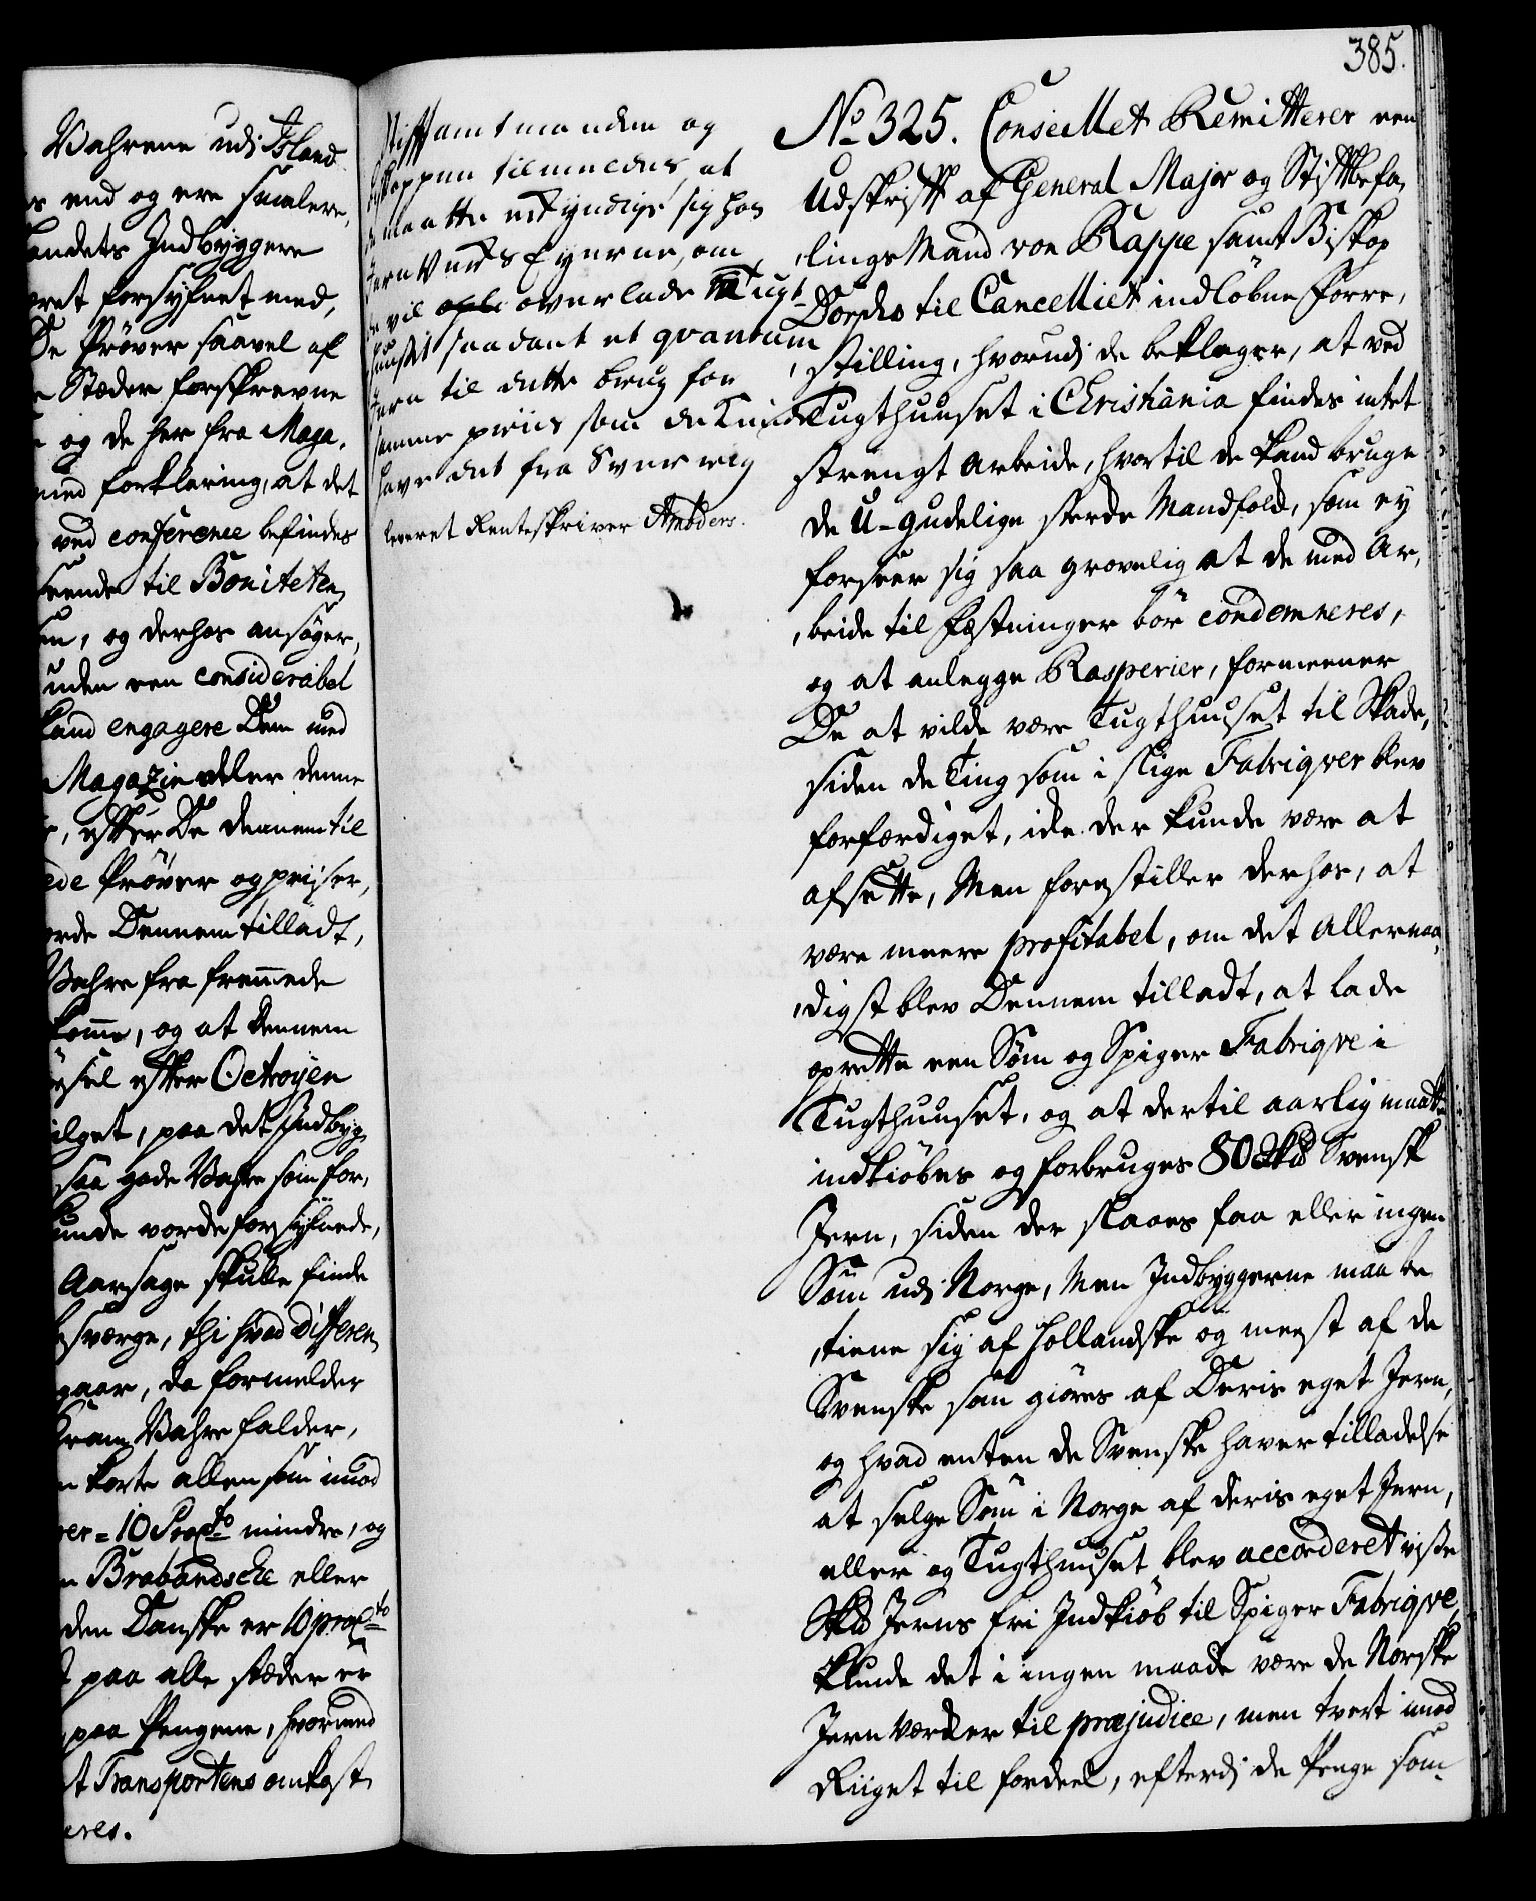 Vahrene udi Island
end og ere smalere,
Landets Indbyggere
veret forsÿnet med,
De Prøver saavel af
Stæder forskrevne
og de her fra Maga,
med forklaring, at det
ved conference befindes
seende til Boniteten
og derhos ansøger,
uden een considerabel
kand engagere Dem med
Magazin eller denne
efter De dennem til
Prøver og priser,
vorde Dennem tilladt,
Vahre fra fremmede
komme, og at dennem
efter Octroyen
paa det Indbyg
saa gode Vahre som for,
kunde vorde forsÿnede,
Aarsage skulle finde
besværge, thi hvad Differen
gaar, da formelder
Kram Vahre falder,
korte allen som imod
10 Procto mindre, og
Brabandsche eller
den Danske er 10 procto
paa alle stæder er
paa Pengene, hvormed
Transportens omkost
eres.
Stifftamtmanden og
Bisköppen tilmeldes, at
de maatte erkyndige sig hos
Jern Verks Eyerne, om
de vil overlade Tugt
huuset saadant et qvantum
Jern til dette brug for
samme priis som de kunde
have det fra Sverrig
leveret Renteskriver Amders.
385.
No 325. Conseillet Remitterer een
Udskrifft af General Major og Stifftbefa,
lings Mand von Rappe samt Biskop
Dorphs til Cancelliet indløbne forre,
stilling, hvorudj de beklager, at ved
Tugthuuset i Christiania findes intet
strengt Arbeide, hvortil de kand bruge
de U-gudelige sterke Mandfolk, som ey
forseer sig saa grovelig at de med Ar,
beide til Fæstninger bør condemneres,
og at anlegge Rasperier, formeener
De at vilde være Tugthuuset til Skade,
siden de Ting som i slige Fabriqver blev
forfærdiget, icke der kunde være at
afsette, Men forestiller derhos, at
være meere profitabel, om det Allernaa,
digst blev Dennem tilladt, at lade
oprette een Søm og Spiger Fabriqve i
Tugthuuset, og at dertil aarlig maatte
indkiøbes og forbruges 80 Sk℔ Svensk
Jern, siden der slaaes faa eller ingen
Søm udj Norge, Men Indbyggerne maa be
tiene sig af Hollandske og meest af de
Svenske som giøres af Deris eget Jern,
og hvad enten de Svenske haver tilladelse
at selge Søm i Norge af deris eget Jern,
eller og Tugthuuset blev accorderet visse
Sk℔ Jerns fri Indkiøb til Spiger Fabriqve,
kunde det i ingen maade være de Norske
Jern Værcker til præjudice, men tvert imod
Riiget til fordeel, efterdj de Penge som